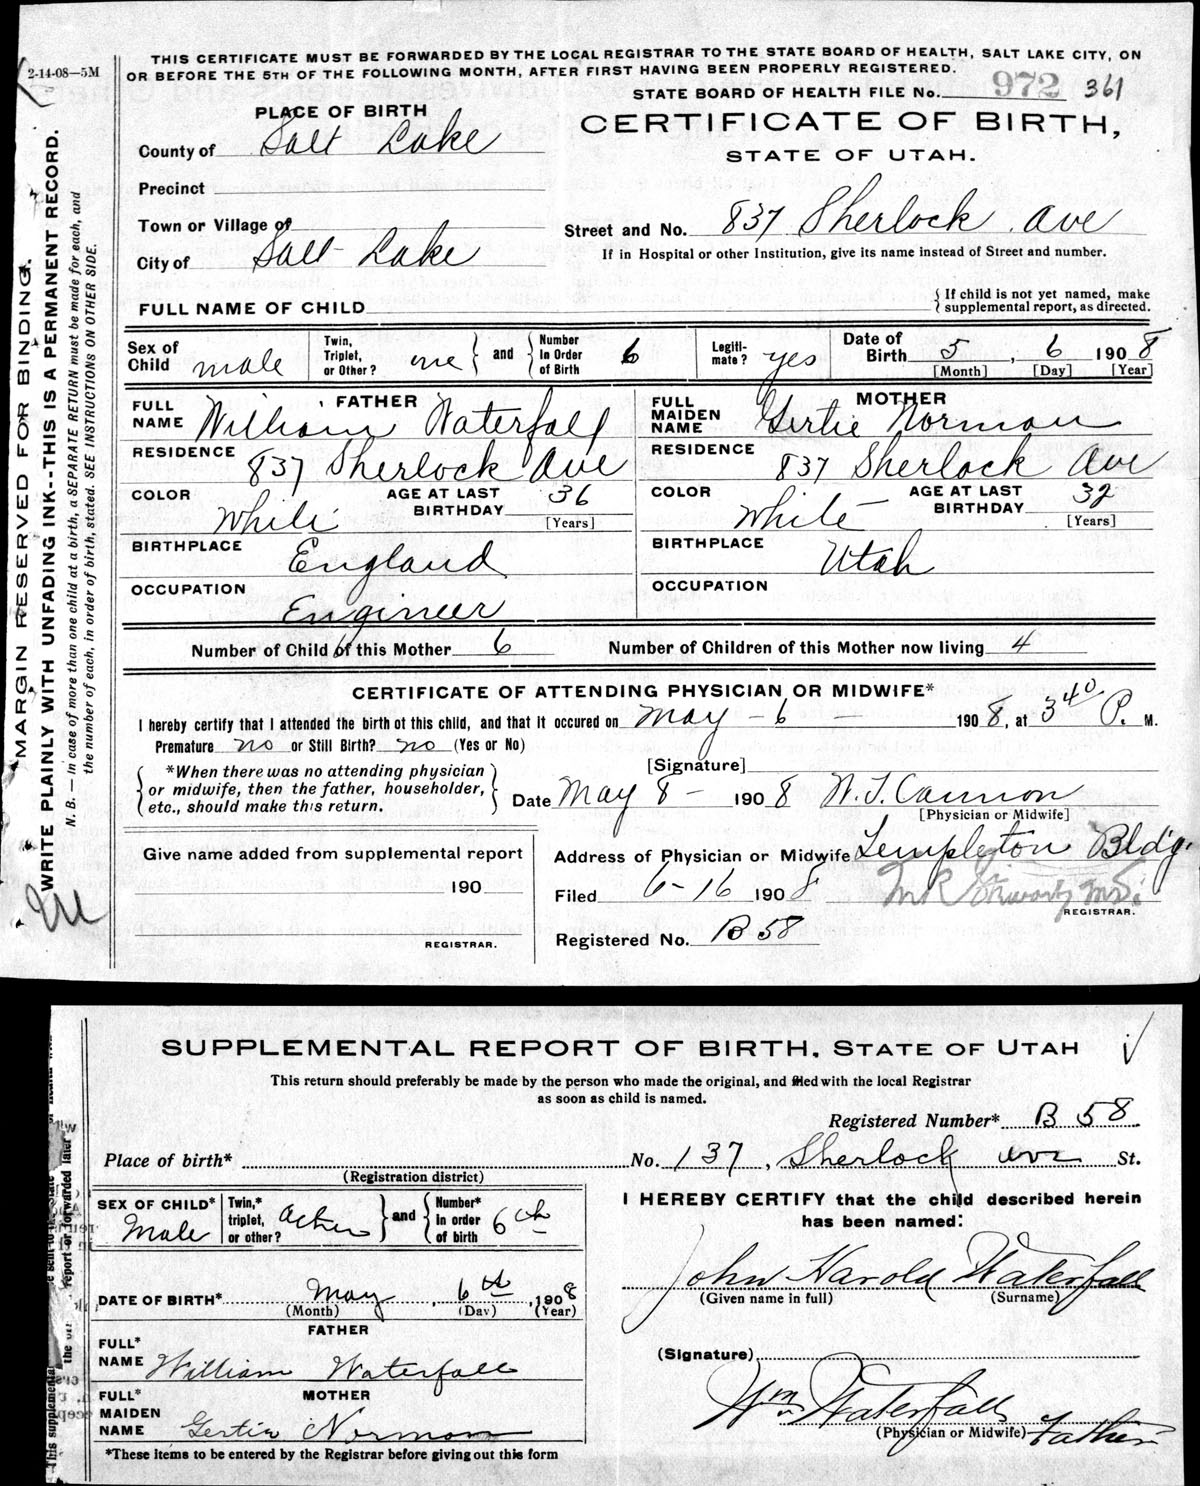 2-14-08—5M
THIS CERTIFICATE MUST BE FORWARDED BY THE LOCAL REGISTRAR TO THE STATE BOARD OF HEALTH, SALT LAKE CITY, ON
OR BEFORE THE 5TH OF THE FOLLOWING MONTH, AFTER FIRST HAVING BEEN PROPERLY REGISTERED.
STATE BOARD OF HEALTH FILE No. 972 361
PLACE OF BIRTH
CERTIFICATE OF BIRTH,
STATE OF UTAH.
County of Salt Lake
Precinct
Town or Village of
City of Salt Lake
Street and No. 837 Sherlock Ave
If in Hospital or other Institution, give its name instead of Street and number.
FULL NAME OF CHILD
{ If child is not yet named, make
supplemental report, as directed.
Sex of Child male
Twin, Triplet, or Other? one } and { Number In Order of Birth 6
Legiti-mate? yes
Date of Birth 5, 6 1908
[Month] [Day] [Year]
FATHER
FULL NAME William Waterfall
RESIDENCE 837 Sherlock Ave
COLOR White AGE AT LAST BIRTHDAY 36 [Years]
BIRTHPLACE England
OCCUPATION Engineer
MOTHER
FULL MAIDEN NAME Gertie Norman
RESIDENCE 837 Sherlock Ave
COLOR White AGE AT LAST BIRTHDAY 32 [Years]
BIRTHPLACE Utah
OCCUPATION
Number of Child of this Mother 6 Number of Children of this Mother now living 4
CERTIFICATE OF ATTENDING PHYSICIAN OR MIDWIFE*
I hereby certify that I attended the birth of this child, and that it occured on May - 6 - 1908, at 3 40 P. M.
Premature no or Still Birth? no (Yes or No)
{ *When there was no attending physician
or midwife, then the father, householder,
etc., should make this return. }
[Signature]
Date May 8 - 1908 W. T. Cannon
[Physician or Midwife]
Give name added from supplemental report
190
REGISTRAR.
Address of Physician or Midwife Templeton Bldg.
Filed 6-16 1908
REGISTRAR.
Registered No. B 58
MARGIN RESERVED FOR BINDING.
WRITE PLAINLY WITH UNFADING INK--THIS IS A PERMANENT RECORD.
N. B. — In case of more than one child at a birth, a SEPARATE RETURN must be made for each, and
the number of each, in order of birth, stated. SEE INSTRUCTIONS ON OTHER SIDE.
SUPPLEMENTAL REPORT OF BIRTH, STATE OF UTAH
This return should preferably be made by the person who made the original, and filed with the local Registrar
as soon as child is named.
Registered Number* B 58
Place of birth* No. 137, Sherlock ave St.
(Registration district)
SEX OF CHILD* Male
Twin,* triplet, or other? other } and { Number* In order of birth 6th
DATE OF BIRTH* May, 6th, 1908
(Month) (Day) (Year)
FATHER
FULL* NAME William Waterfall
MOTHER
FULL* MAIDEN NAME Gertie Norman
*These items to be entered by the Registrar before giving out this form
I HEREBY CERTIFY that the child described herein
has been named:
John Harold Waterfall
(Given name in full) (Surname)
(Signature)
Wm Waterfall
(Physician or Midwife) Father